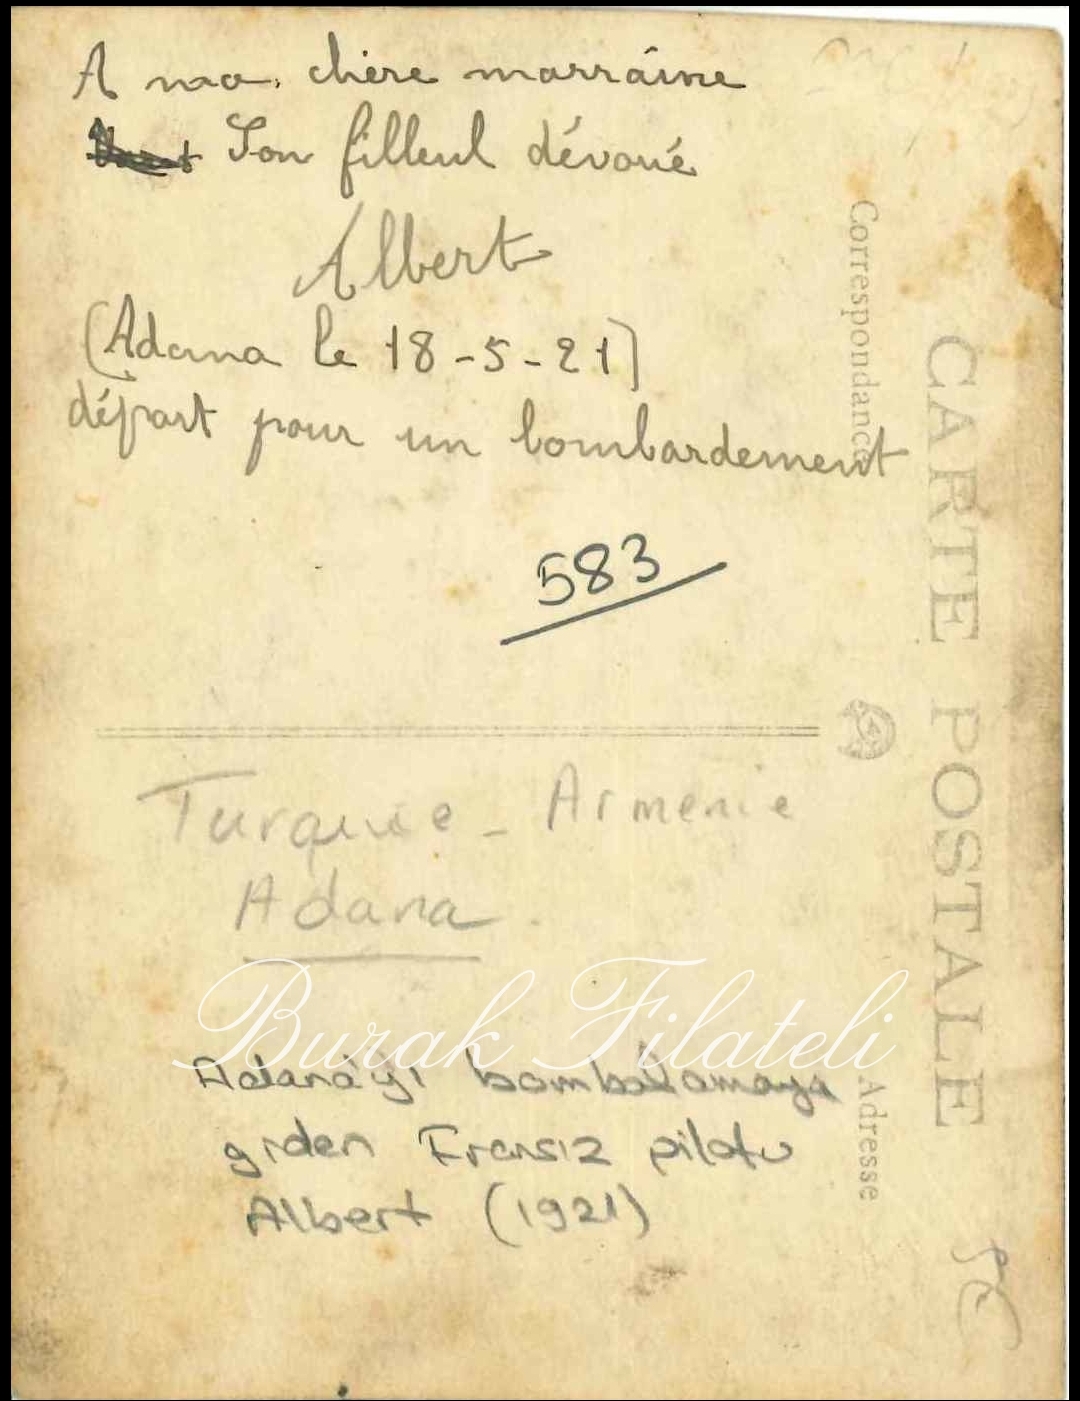 A ma chère marraine
Son filleul dévoué
Albert
(Adana le 18-5-21)
départ pour un bombardement
583
Turquie - Armenie
Adana
Burak Filateli
Adana'yı bombalamaya
giden Fransız pilotu
Albert (1921)
Correspondance
CARTE POSTALE
Adresse